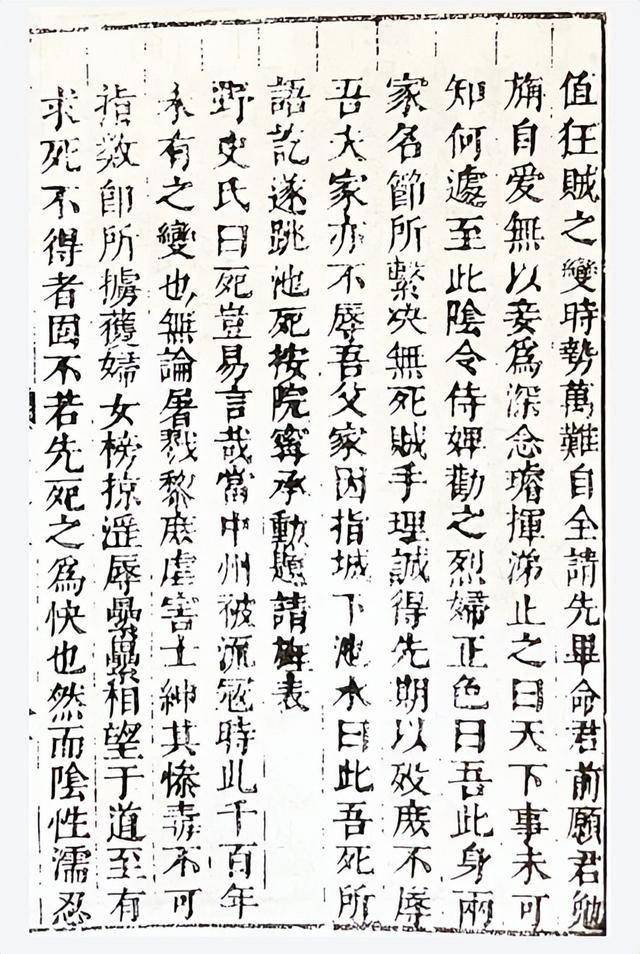 值狂賊之變時勢萬難自全請先畢命君前願君勉
旃自愛無以妾爲深念璿揮涕止之曰天下事未可
知何遽至此陰令侍婢勸之烈婦正色曰吾此身兩
家名節所繫決無死賊手理誠得先期以歿庶不辱
吾夫家亦不辱吾父家因指城下池水曰此吾死所
語訖遂跳池死按院甯承勳題請旌表
野史氏曰死豈易言哉當中州被流寇時此千百年
未有之變也無論屠戮黎庶虐害士紳其慘毒不可
指數卽所擄獲婦女榜掠淫辱纍纍相望于道至有
求死不得者固不若先死之爲快也然而陰性濡忍